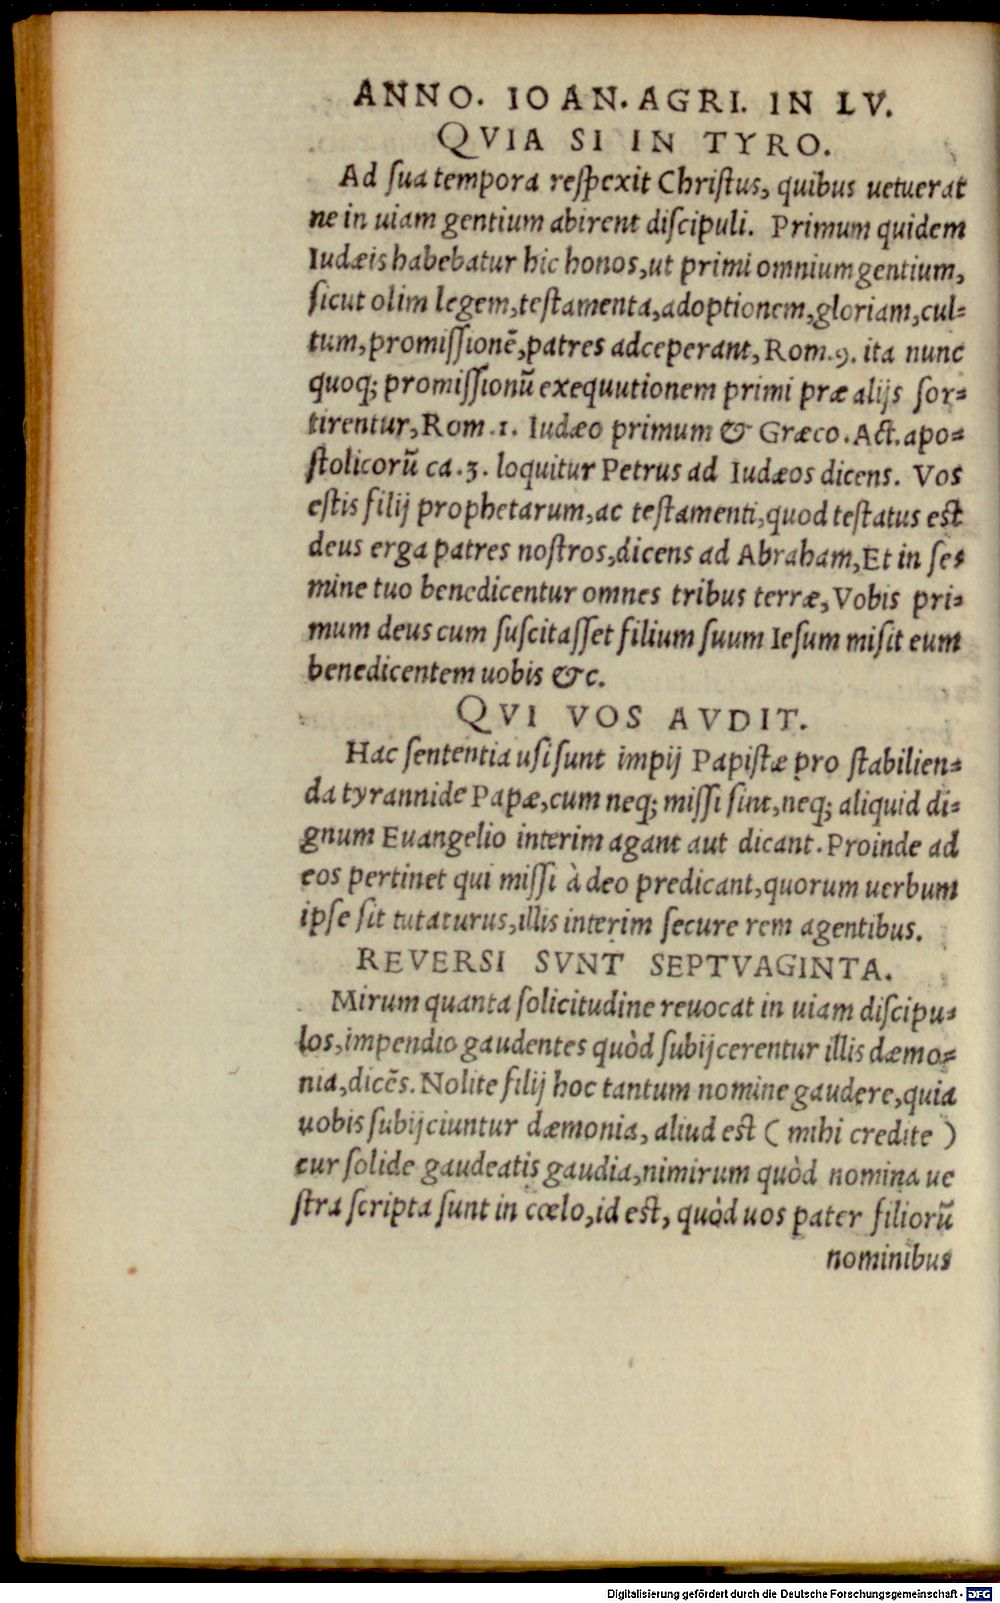 ANNO. IOAN. AGRI. IN LV.
QVIA SI IN TYRO.
Ad ſua tempora reſpexit Chriſtus, quibus uetuerat
ne in uiam gentium abirent diſcipuli. Primum quidem
Iudæis habebatur hic honos, ut primi omnium gentium,
ſicut olim legem, teſtamenta, adoptionem, gloriam, cul=
tum, promiſſionẽ, patres adceperant, Rom. 9. ita nunc
quoq; promiſſionũ exequutionem primi præ alijs ſor=
tirentur, Rom. 1. Iudæo primum & Græco. Act. apo=
ſtolicorũ ca. 3. loquitur Petrus ad Iudæos dicens. Vos
eſtis filij prophetarum, ac teſtamenti, quod teſtatus eſt
deus erga patres noſtros, dicens ad Abraham, Et in ſe=
mine tuo benedicentur omnes tribus terræ, Vobis pri=
mum deus cum ſuſcitaſſet filium ſuum Ieſum miſit eum
benedicentem uobis &c.
QVI VOS AVDIT.
Hac ſententia uſi ſunt impij Papiſtæ pro ſtabilien=
da tyrannide Papæ, cum neq; miſſi ſint, neq; aliquid di=
gnum Euangelio interim agant aut dicant. Proinde ad
eos pertinet qui miſſi à deo predicant, quorum uerbum
ipſe ſit tutaturus, illis interim ſecure rem agentibus.
REVERSI SVNT SEPTVAGINTA.
Mirum quanta ſolicitudine reuocat in uiam diſcipu=
los, impendio gaudentes quòd ſubijcerentur illis dæmo=
nia, dicẽs. Nolite filij hoc tantum nomine gaudere, quia
uobis ſubijciuntur dæmonia, aliud eſt ( mihi credite )
cur ſolide gaudeatis gaudia, nimirum quòd nomina ue
ſtra ſcripta ſunt in cœlo, id eſt, quòd uos pater filiorũ
nominibus
Digitalisierung gefördert durch die Deutsche Forschungsgemeinschaft - DFG